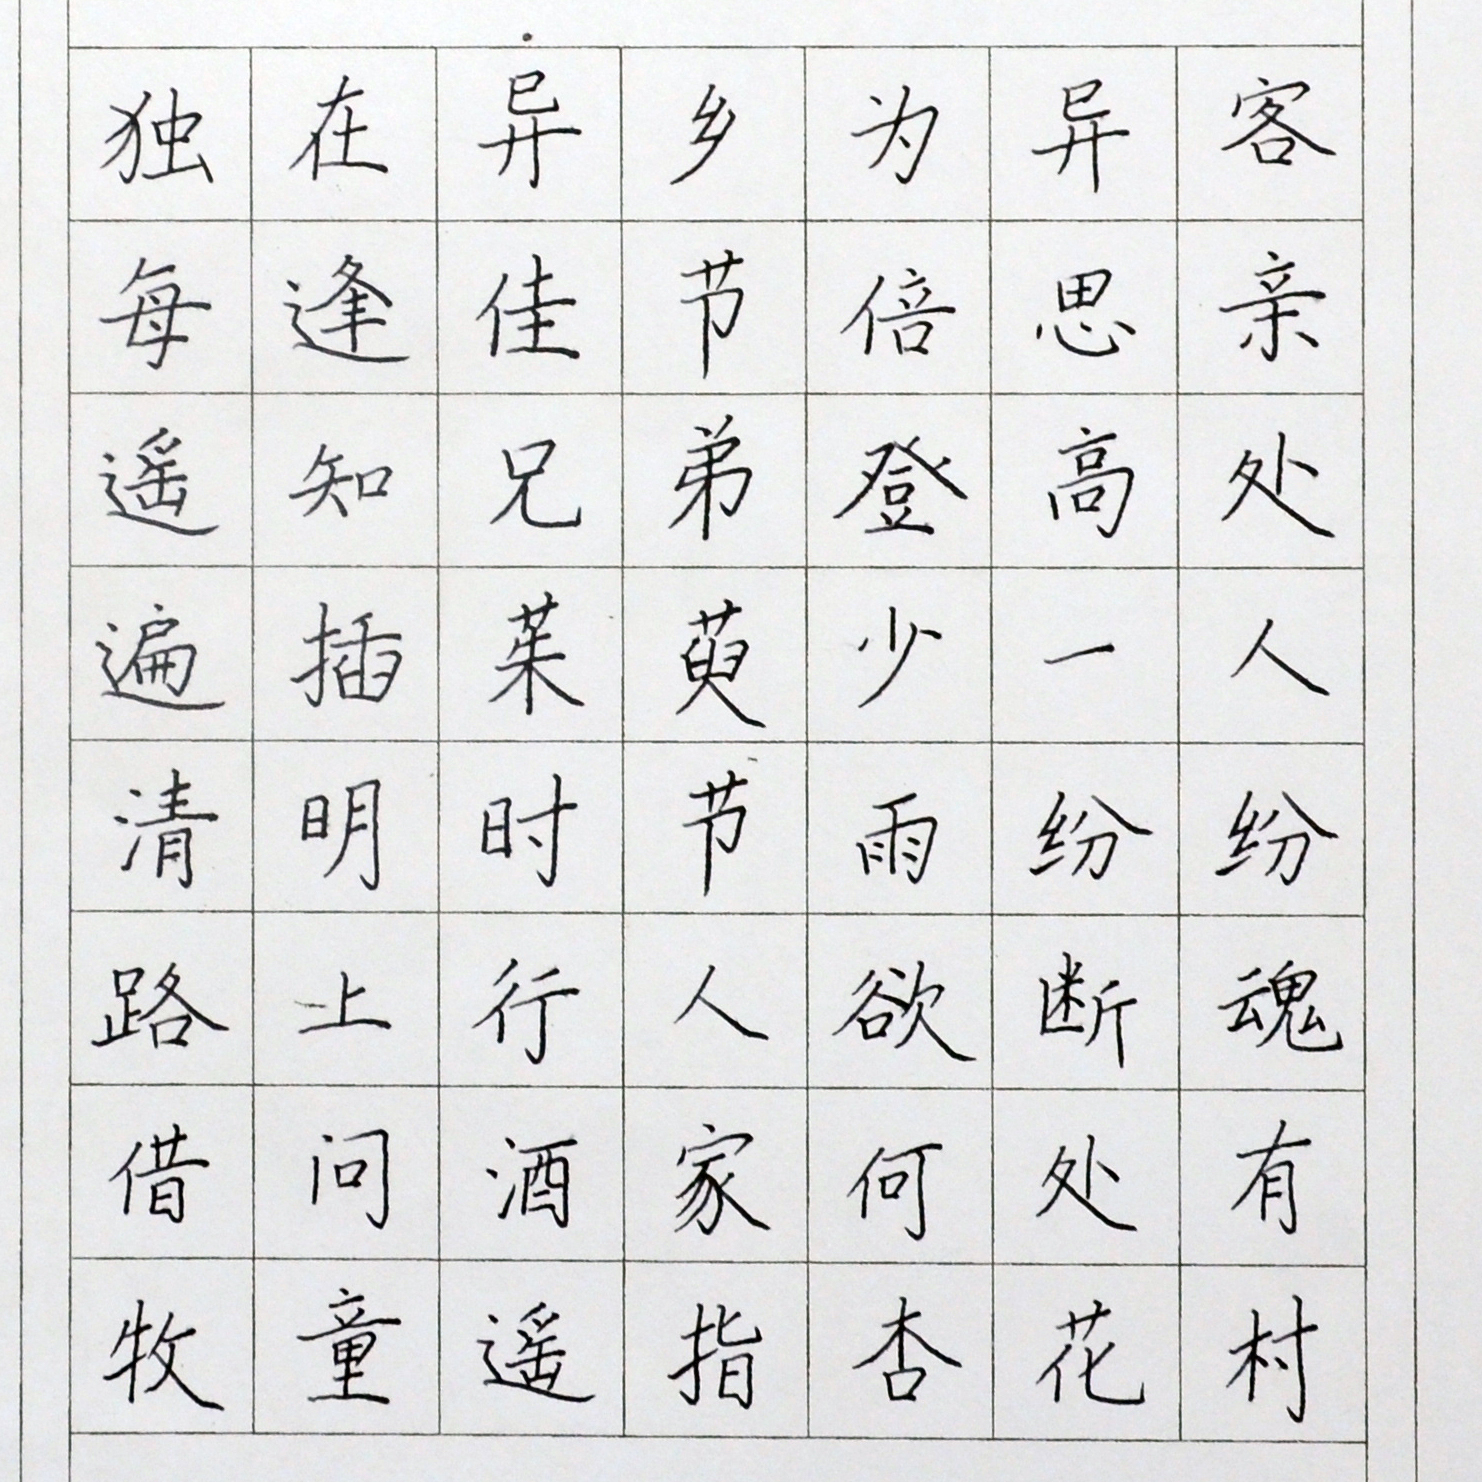 独在异乡为异客
每逢佳节倍思亲
遥知兄弟登高处
遍插茱萸少一人
清明时节雨纷纷
路上行人欲断魂
借问酒家何处有
牧童遥指杏花村